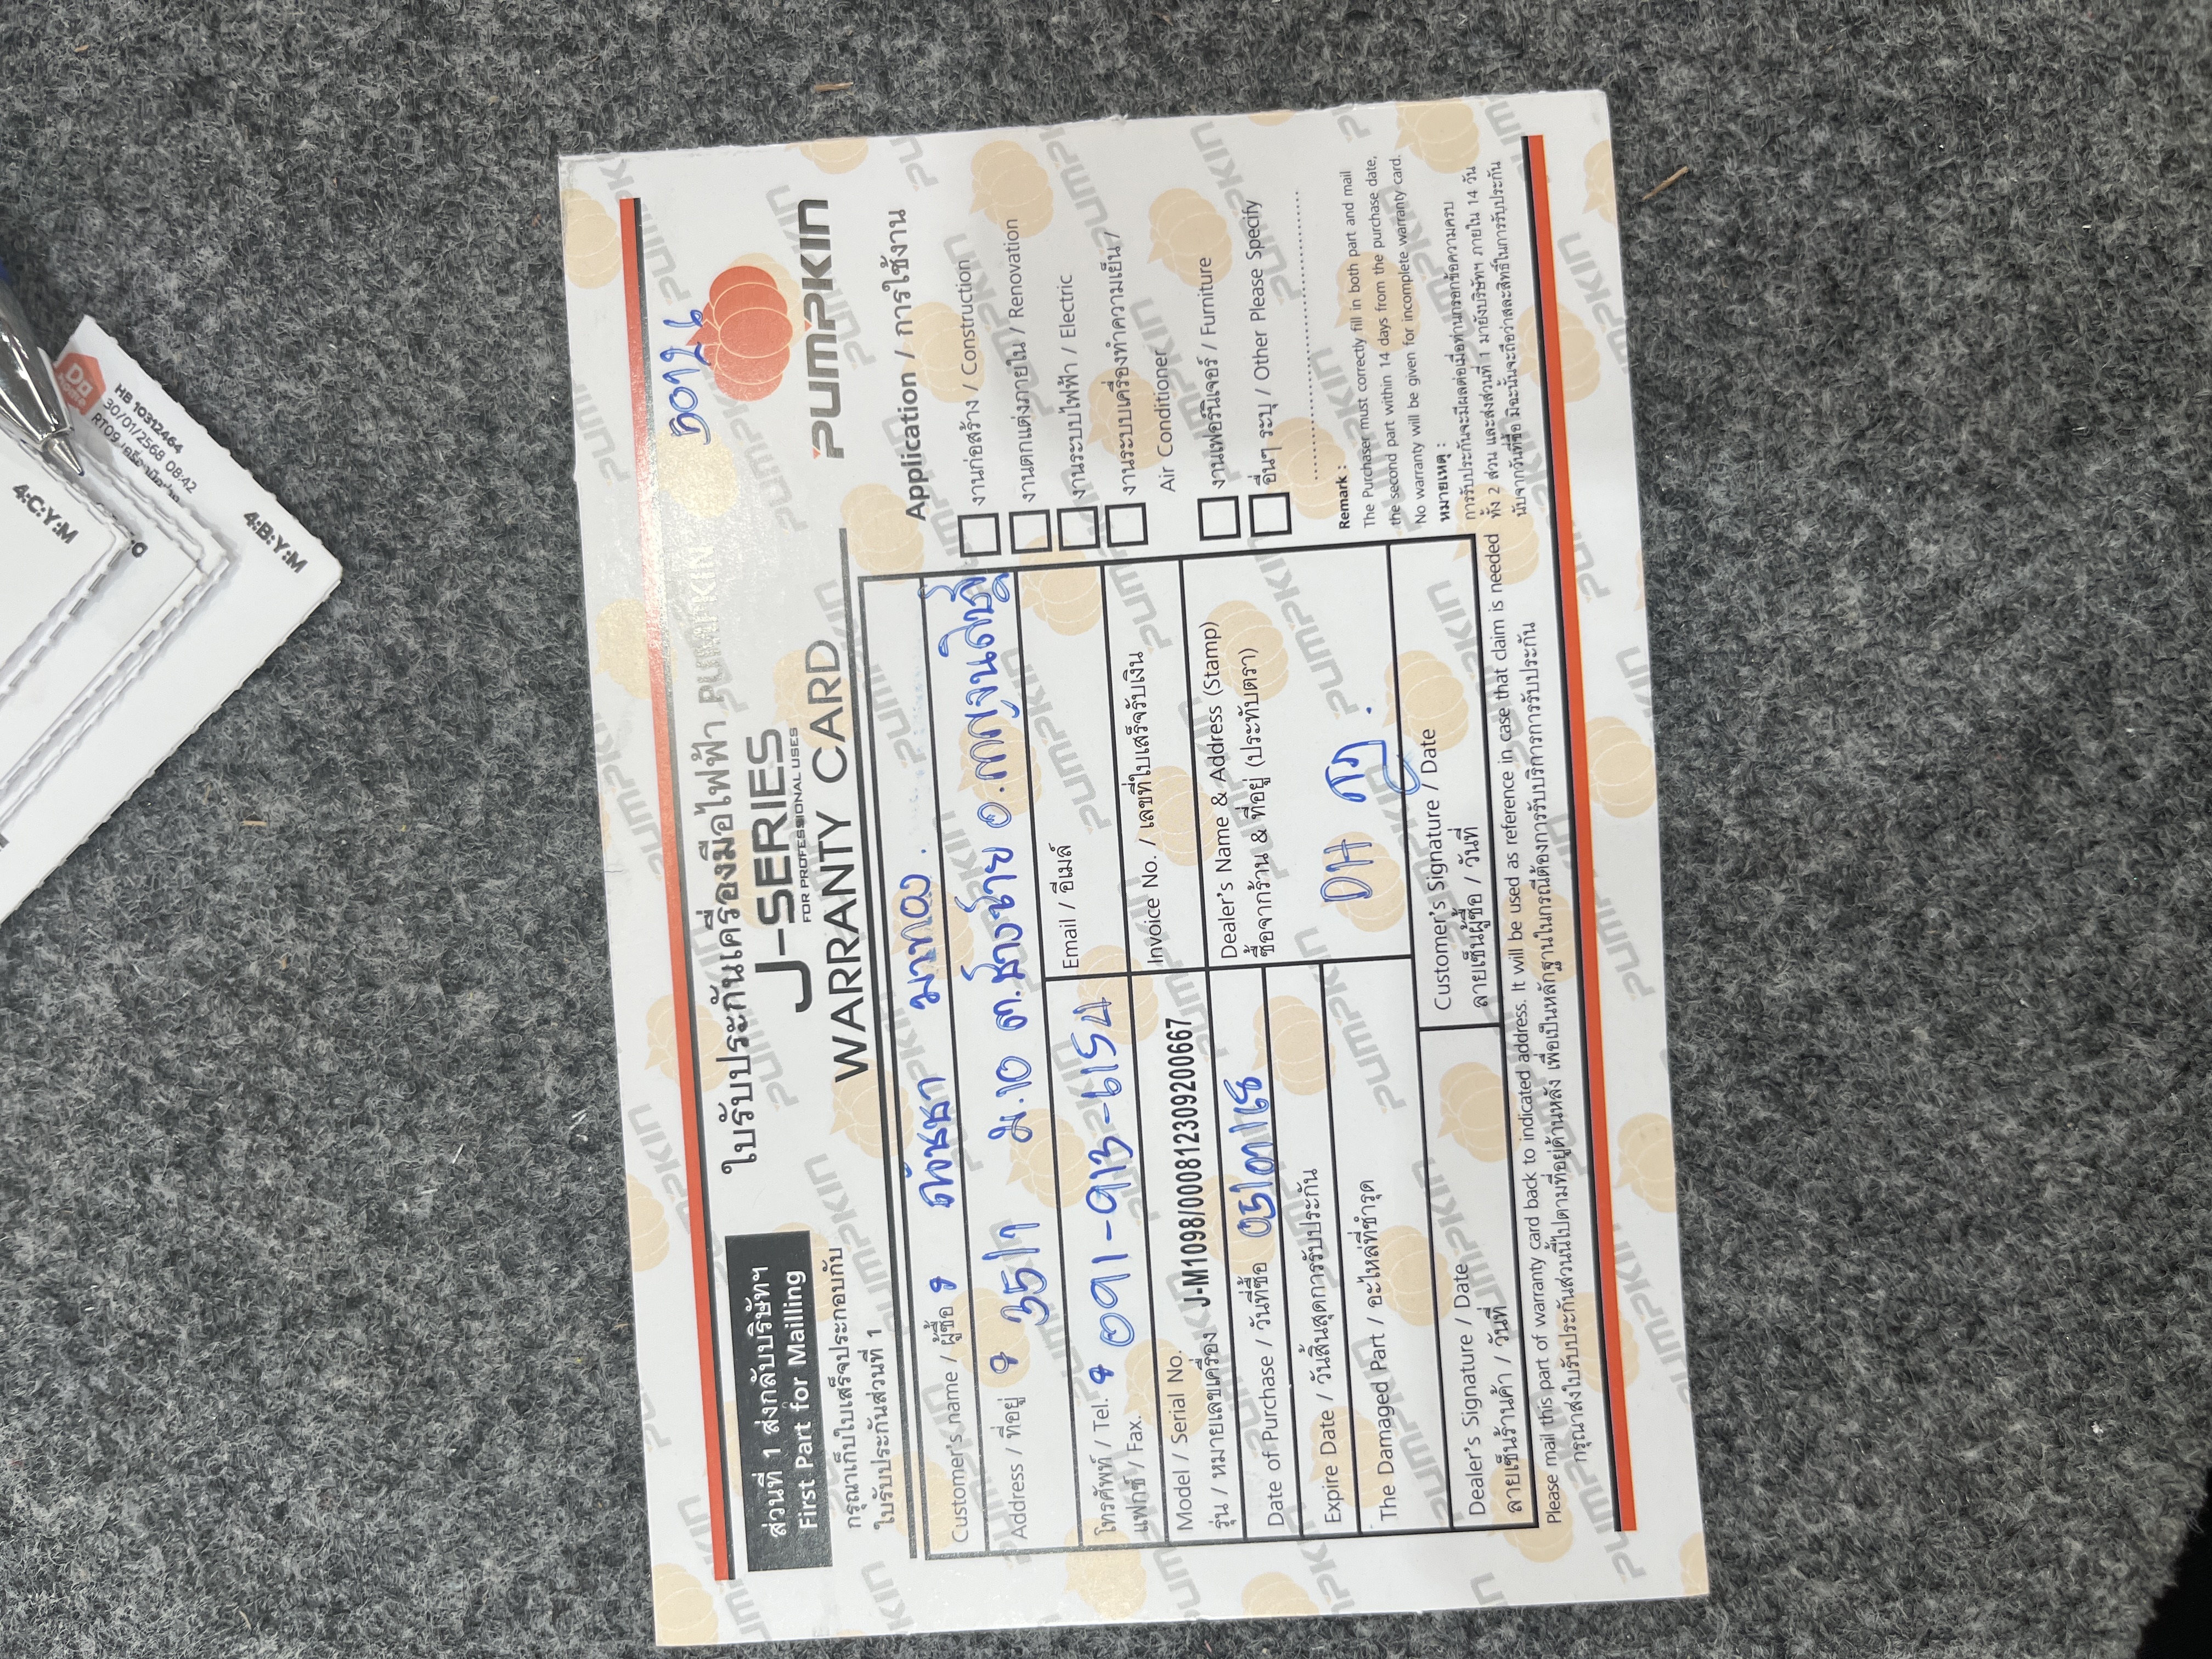 50126
ส่วนที่ 1 ส่งกลับบริษัทฯ
First Part for Mailling
กรุณาเก็บใบเสร็จประกอบกับ
ใบรับประกันส่วนที่ 1
ใบรับประกันเครื่องมือไฟฟ้า PUMPKIN
J-SERIES
FOR PROFESSIONAL USES
WARRANTY CARD
PUMPKIN
Customer's name / ผู้ซื้อ
มาทอง.
Address / ที่อยู่ 35/1 ม.10 ต.ช้างซ้าย อ.กาญจนดิษฐ์
โทรศัพท์ / Tel. 091-913-6154
แฟกซ์ / Fax.
Email / อีเมล์
Model / Serial No.
รุ่น / หมายเลขเครื่อง J-M1098/000812309200667
Invoice No. / เลขที่ใบเสร็จรับเงิน
Date of Purchase / วันที่ซื้อ
Expire Date / วันสิ้นสุดการรับประกัน
The Damaged Part / อะไหล่ที่ชำรุด
Dealer's Name & Address (Stamp)
ซื้อจากร้าน & ที่อยู่ (ประทับตรา)
DH
Dealer's Signature / Date
ลายเซ็นร้านค้า / วันที่
Customer's Signature / Date
ลายเซ็นผู้ซื้อ / วันที่
Application / การใช้งาน
งานก่อสร้าง / Construction
งานตกแต่งภายใน / Renovation
งานระบบไฟฟ้า / Electric
งานระบบเครื่องทำความเย็น /
Air Conditioner
งานเฟอร์นิเจอร์ / Furniture
อื่นๆ ระบุ / Other Please Specify
Remark :
The Purchaser must correctly fill in both part and mail
the second part within 14 days from the purchase date,
No warranty will be given for incomplete warranty card.
หมายเหตุ :
การรับประกันจะมีผลต่อเมื่อท่านกรอกข้อความครบ
ทั้ง 2 ส่วน และส่งส่วนที่ 1 มายังบริษัทฯ ภายใน 14 วัน
นับจากวันที่ซื้อ มิฉะนั้นจะถือว่าสละสิทธิ์ในการรับประกัน
Please mail this part of warranty card back to indicated address. It will be used as reference in case that claim is needed
กรุณาส่งใบรับประกันส่วนนี้ไปตามที่อยู่ด้านหลัง เพื่อเป็นหลักฐานในกรณีต้องการรับบริการการรับประกัน
Do
Home
HB 10312464
30/01/2568 08:42
4:C:Y:M
4:B:Y:M